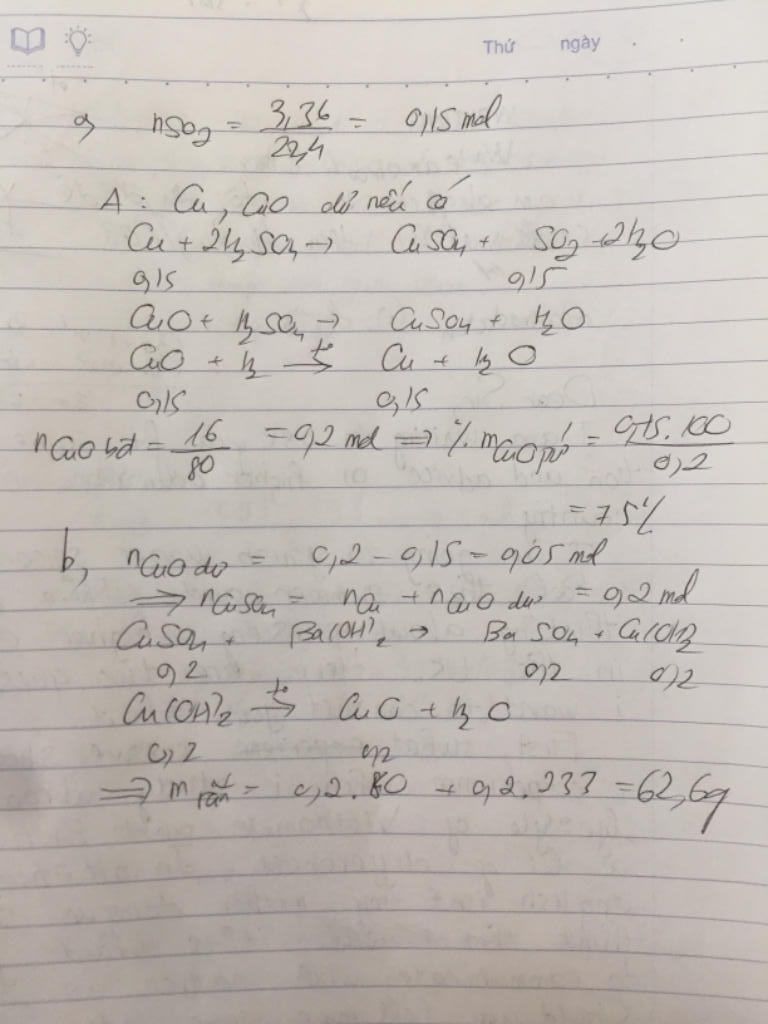 Thứ ngày
a, nSO2 = 3,36/22,4 = 0,15 mol
A : Cu, CuO dư nếu có
Cu + 2H2SO4 → CuSO4 + SO2 + 2H2O
0,15 0,15
CuO + H2SO4 → CuSO4 + H2O
CuO + H2 →t° Cu + H2O
0,15 0,15
nCuO bđ = 16/80 = 0,2 mol ⇒ % mCuO pứ = 0,15.100/0,2
= 75%
b, nCuO dư = 0,2 - 0,15 = 0,05 mol
⇒ nCuSO4 = nCu + nCuO dư = 0,2 mol
CuSO4 + Ba(OH)2 → BaSO4 + Cu(OH)2
0,2 0,2 0,2
Cu(OH)2 →t° CuO + H2O
0,2 0,2
⇒ m rắn = 0,2.80 + 0,2.233 = 62,6g